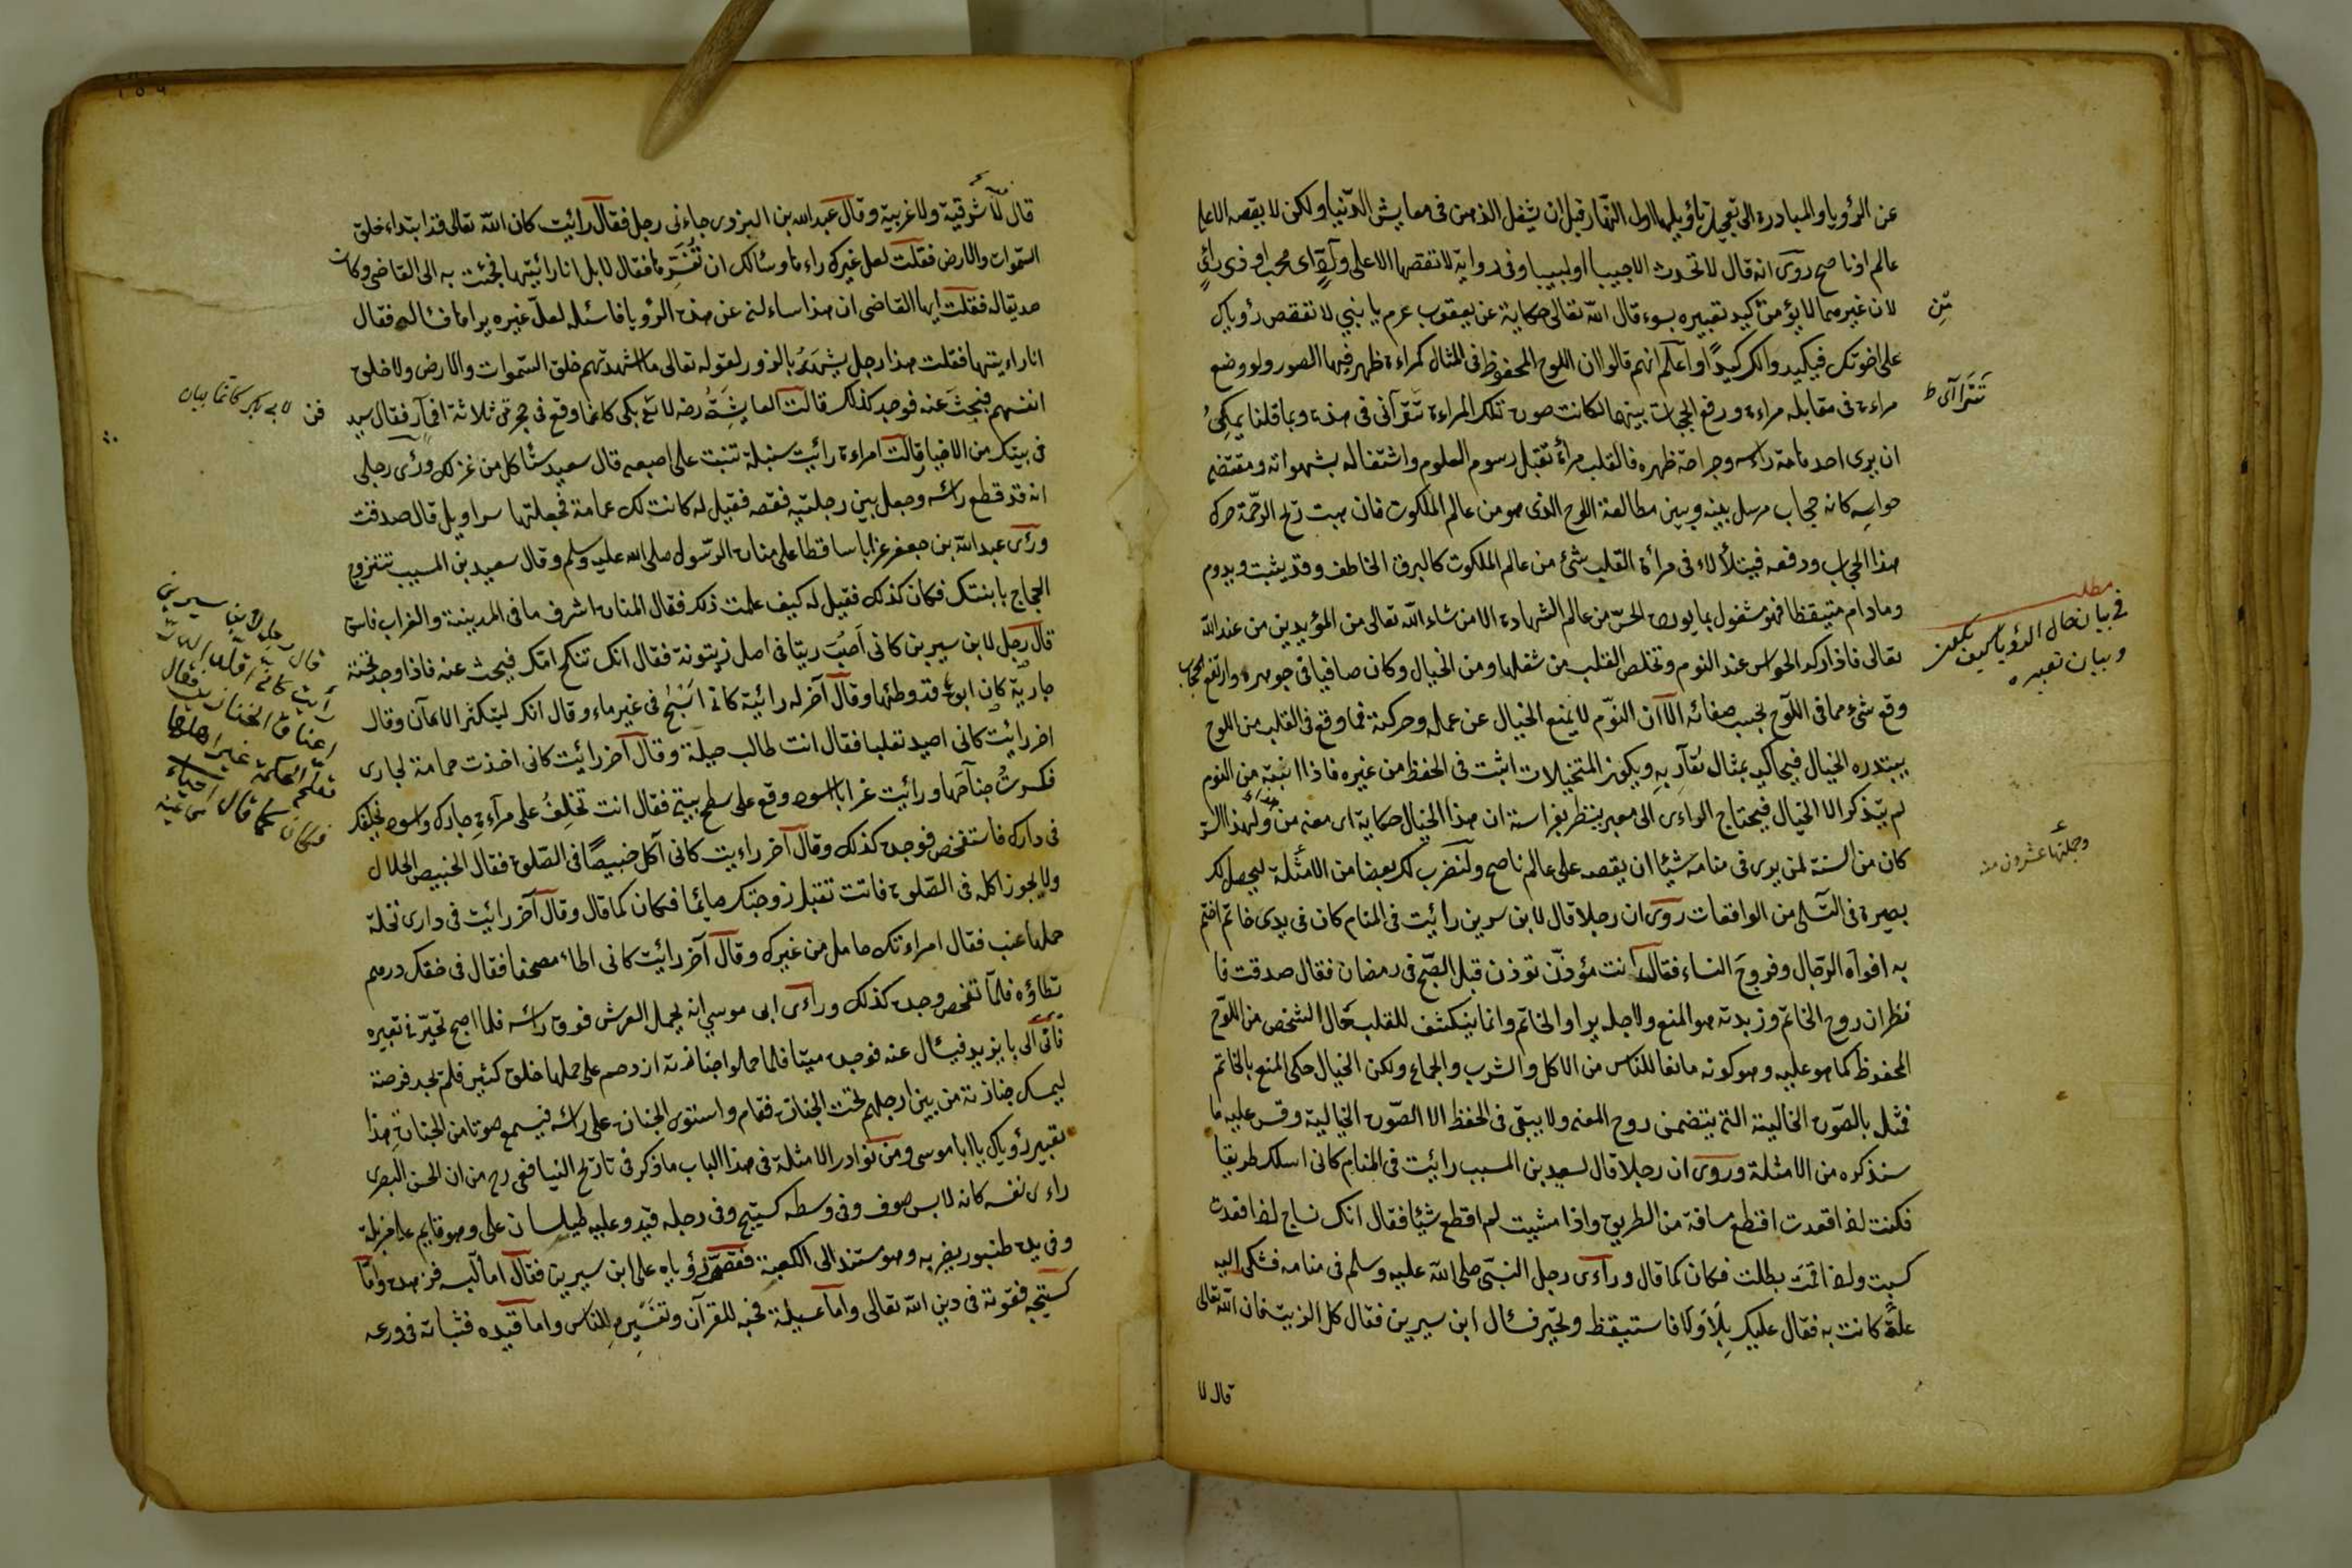 عن الرؤيا والمبادرة الى تعجيل تأويلها اول النهار قبل ان يشغل الذهن فى معايش الدنيا ولكن لا يقصه الا على
عالم او ناصح روى انه قال لا تحدث الا حبيبا او لبيبا وفى رواية لا تقصها الا على وادٍّ اى محب او ذى رأىٍ
لان غيرهما لا يؤمن كيد تعبيره بسوء قال الله تعالى حكاية عن يعقوب عم يا بنى لا تقصص رؤياك
على اخوتك فيكيدوا لك كيدًا واعلم انهم قالوا ان اللوح المحفوظ فى المثال كمراءة ظهر فيها الصور ولو وضع
مراءة فى مقابله مراءة ورفع الحجاب بينهما لكانت صورة تلك المراءة تترآئى فى هذه وبما قلنا يمكن
ان يرى احد هامة راسه وجراحة ظهره فالقلب مرأة تقبل رسوم العلوم واشتغاله بشهواته ومقتضى
حواسه كانه حجاب مرسل بينه وبين مطالعة اللوح الذى هو من عالم الملكوت فان هبت ريح الرحمة حرك
هذا الحجاب ودفعه فيتلألاء فى مرأة القلب شئ من عالم الملكوت كالبرق الخاطف وقد يثبت ويدوم
وما دام متيقظا فهو مشغول بما يورده الحسّ من عالم الشهادة الا من شاء الله تعالى من المؤيدين من عند الله
تعالى فاذا ركد الحواس عند النوم وتخلص القلب من شغلها ومن الخيال وكان صافيا فى جوهره وارتفع الحجاب
وقع شئ مما فى اللوح بحسب صفائه الا ان النوم لا يمنع الخيال عن عمله وحركته فما وقع فى القلب من اللوح
يبتدره الخيال فيحاكيه بمثال يقاربه ويكون المتخيلات اثبت فى الحفظ من غيره فاذا انتبه من النوم
لم يتذكر الا الخيال فيحتاج الراءى الى معبر ينظر بفراسته ان هذا الخيال حكاية اى معنى من ولهذا السر
كان من السنة لمن يرى فى منامه شيئا ان يقصه على عالم ناصح ولنضرب لك بعضا من الامثلة ليحصل لك
بصيرة فى التسلى من الواقعات روى ان رجلا قال لابن سيرين رائيت فى المنام كان فى يدى خاتم اختم
به افواه الرجال وفروج النساء فقال انت مؤذّن توذن قبل الصبح فى رمضان فقال صدقت فا
نظر ان روح الخاتم وزبدته هو المنع ولاجله يراد الخاتم وانما ينكشف للقلب حال الشخص من اللوح
المحفوظ كما هو عليه وهو كونه مانعا للناس من الاكل والشرب والجماع ولكن الخيال حكى المنع بالخاتم
فمثله بالصورة الخالية التى يتضمن روح المعنى ولا يبقى فى الحفظ الا الصورة الخيالية وقس عليه ما
سنذكره من الامثلة وروى ان رجلا قال لسعيد بن المسيب رائيت فى المنام كانى اسلك طريقا
فكنت اذا قعدت اقطع مسافة من الطريق واذا مشيت لم اقطع شيئا فقال انك نساج اذا قعدت
كسبت واذا قمت بطلت فكان كما قال وراءى رجل النبى صلى الله عليه وسلم فى منامه فشكى اليه
علة كانت به فقال عليك بلا ولا فاستيقظ وتحير فسأل ابن سيرين فقال كل الزيت فان الله تعالى
قال لا
تترآى ط
مطلب
فى بيان حال الرؤيا كيف تكون
وبيان تعبيره
وجملتها عشرون منه
قال لا شرقية ولا غربية وقال عبد الله بن البزدى جاءنى رجل فقال رائيت كان الله تعالى قد ابتداء خلق
السموات والارض فقلت لعل غيرك راءها وسئالك ان تفسرها فقال لا بل انا رائيتها فجئت به الى القاضى وكانت
صديقا له فقلت ايها القاضى ان هذا ساءلنى عن هذه الرؤيا فاسئله لعل غيره يراها فسأله فقال
انا راءيتها فقلت هذا رجل يشهد بالزور لقوله تعالى ما اشهدتهم خلق السموات والارض ولا خلق
انفسهم فبحث عنه فوجد كذلك قالت العايشة رضه كانما وقع فى حجرتى ثلاثة اقمار فقال سيد
فى بيتك من الاخيار قالت امراءة رائيت سنبلة تنبت على اصبعى قال سعيد ستأكل من غزلك ورأى رجل
انه قد قطع راسه وجعل بين رجليه فقصه فقيل له كانت لك عمامة فجعلتها سراويل قال صدقت
ورأى عبد الله بن جعفر غرابا ساقطا على منارة الرسول صلى الله عليه وسلم وقال سعيد بن المسيب تتزوج
الحجاج بابنتك فكان كذلك فقيل له كيف علمت ذلك فقال المنارة اشرف ما فى المدينة والغراب فاسق
قال رجل لابن سيرين كانى اصب زيتا فى اصل زيتونة فقال انك تنكح امك فيبحث عنه فاذا وجد تحته
جارية كان ابوه قد وطئها وقال آخر له رائيت كانى اسبح فى غير ماء وقال انك ليتكثر الامان وقال
اخر رائيت كانى اصيد ثعلبا فقال انت طالب حيلة وقال آخر رائيت كانى اخذت حمامة لجارى
فكسرت جناحها ورائيت غرابا اسود وقع على سطح بيتى فقال انت تخلف على مرآءة جارك واسود يخلفك
فى دارك فاستفحص فوجد كذلك وقال آخر راءيت كانى آكل خبيصًا فى الصلوة فقال الخبيص الحلال
ولا يجوز اكله فى الصلوة فانت تقبل زوجتك صائما فكان كما قال وقال آخر رائيت فى دارى نخلة
حملها عنب فقال امراءتك حامل من غيرك وقال آخر رائيت كانى اطاء مصحفا فقال فى خفك درهم
تطاؤه فلما تفحص وجد كذلك وراءى ابى موسى انه يحمل العرش فوق راسه فلما اصبح تحيّر فى تعبيره
فاتى الى بايزيد فيسأل عنه فوجده ميتا فلما حملوا جنازته ازدحم على حملها خلق كثير فلم يجد فرصة
ليمسك جنازته من بين ارجلهم تحت الجنازة فقام واستوى الجنازة على راسه فيسمع صوتا من الجنازة هذا
تعبير رؤياك يا ابا موسى ومن نوادر الامثلة فى هذا الباب ما ذكر فى تاريخ اليافعى رح من ان الحسن البصرى
راءى نفسه كانه لابس صوف وفى وسطه كستيج وفى رجله قيد وعليه طيلسان على وهو قايم على مزبلة
وفى يده طنبور يضربه وهو مستند الى الكعبة فقصّ رؤياه على ابن سيرين فقال اما لبسه فزهده واما
كستيجه فقوته فى دين الله تعالى واما عسيلته فحبه للقرآن وتفسيره للناس واما قيده فثباته فى ورعه